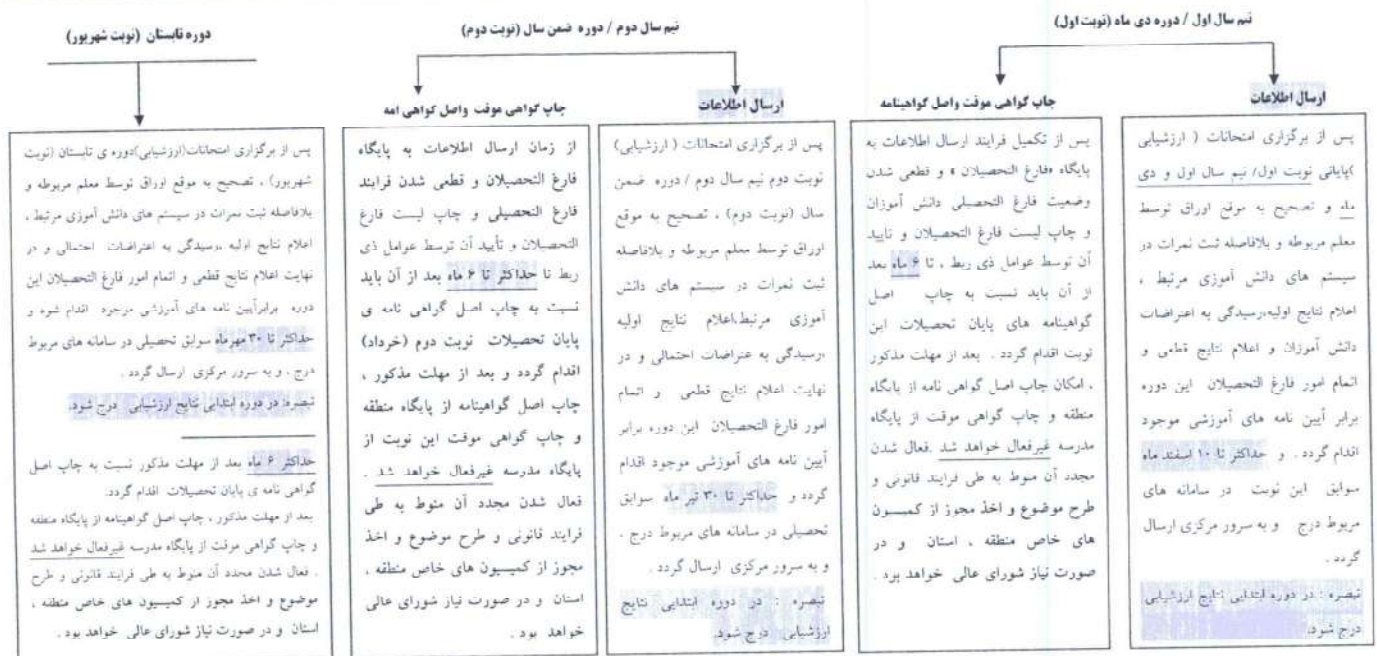 نیم سال اول / دوره دی ماه (نوبت اول)
ارسال اطلاعات
پس از برگزاری امتحانات ( ارزشیابی
)پایانی نوبت اول/ نیم سال اول و دی
ماه و تصحیح به موقع اوراق توسط
معلم مربوطه و بلافاصله ثبت نمرات در
سیستم های دانش آموزی مرتبط ،
اعلام نتایج اولیه،رسیدگی به اعتراضات
دانش آموزان و اعلام نتایج قطعی و
اتمام امور فارغ التحصیلان این دوره
برابر آیین نامه های آموزشی موجود
اقدام گردد . و حداکثر تا ۱۰ اسفند ماه
سوابق این نوبت در سامانه های
مربوط درج و به سرور مرکزی ارسال
گردد .
تبصره : در دوره ابتدایی نتایج ارزشیابی
درج شود.
چاپ گواهی موقت واصل گواهینامه
پس از تکمیل فرایند ارسال اطلاعات به
پایگاه «فارغ التحصیلان » و قطعی شدن
وضعیت فارغ التحصیلی دانش آموزان
و چاپ لیست فارغ التحصیلان و تایید
آن توسط عوامل ذی ربط ، تا ۶ ماه بعد
از آن باید نسبت به چاپ اصل
گواهینامه های پایان تحصیلات این
نوبت اقدام گردد . بعد از مهلت مذکور
، امکان چاپ اصل گواهی نامه از پایگاه
منطقه و چاپ گواهی موقت از پایگاه
مدرسه غیرفعال خواهد شد .فعال شدن
مجدد آن منوط به طی فرایند قانونی و
طرح موضوع و اخذ مجوز از کمیسیون
های خاص منطقه ، استان و در
صورت نیاز شورای عالی خواهد بود .
نیم سال دوم / دوره ضمن سال (نوبت دوم)
ارسال اطلاعات
پس از برگزاری امتحانات ( ارزشیابی)
نوبت دوم نیم سال دوم / دوره ضمن
سال (نوبت دوم) ، تصحیح به موقع
اوراق توسط معلم مربوطه و بلافاصله
ثبت نمرات در سیستم های دانش
آموزی مرتبط،اعلام نتایج اولیه
،رسیدگی به عتراضات احتمالی و در
نهایت اعلام نتایج قطعی و اتمام
امور فارغ التحصیلان این دوره برابر
آیین نامه های آموزشی موجود اقدام
گردد و حداکثر تا ۳۰ تیر ماه سوابق
تحصیلی در سامانه های مربوط درج .
و به سرور مرکزی ارسال گردد .
تبصره : در دوره ابتدایی نتایج
ارزشیابی درج شود.
چاپ گواهی موقت واصل گواهی امه
از زمان ارسال اطلاعات به پایگاه
فارغ التحصیلان و قطعی شدن فرایند
فارغ التحصیلی و چاپ لیست فارغ
التحصیلان و تأیید آن توسط عوامل ذی
ربط تا حداکثر تا ۶ ماه بعد از آن باید
نسبت به چاپ اصل گراهی نامه ی
پایان تحصیلات نوبت دوم (خرداد)
اقدام گردد و بعد از مهلت مذکور ،
چاپ اصل گواهینامه از پایگاه منطقه
و چاپ گواهی موقت این نوبت از
پایگاه مدرسه غیرفعال خواهد شد .
فعال شدن مجدد آن منوط به طی
فرایند قانونی و طرح موضوع و اخذ
مجوز از کمیسیون های خاص منطقه ،
استان و در صورت نیاز شورای عالی
خواهد بود .
دوره تابستان (نوبت شهریور)
پس از برگزاری امتحانات(ارزشیابی)دوره ی تابستان (نوبت
شهریور) ، تصحیح به موقع اوراق توسط معلم مربوطه و
بلافاصله ثبت نمرات در سیستم های دانش آموزی مرتبط ،
اعلام نتایج اولیه ،رسیدگی به اعتراضات احتمالی و در
نهایت اعلام نتایج قطعی و اتمام امور فارغ التحصیلان این
دوره برابرآیین نامه های آموزشی موجود اقدام شوه و
حداکثر تا ۳۰ مهرماه سوابق تحصیلی در سامانه های مربوط
درج . و به سرور مرکزی ارسال گردد .
تبصره: در دوره ابتدایی نتایج ارزشیابی درج شود.
حداکثر ۶ ماه بعد از مهلت مذکور نسبت به چاپ اصل
گواهی نامه ی پایان تحصیلات اقدام گردد.
بعد از مهلت مذکور ، چاپ اصل گواهینامه از پایگاه منطقه
و چاپ گواهی موقت از پایگاه مدرسه غیرفعال خواهد شد
. فعال شدن مجدد آن منوط به طی فرایند قانونی و طرح
موضوع و اخذ مجوز از کمیسیون های خاص منطقه ،
استان و در صورت نیاز شورای عالی خواهد بود .